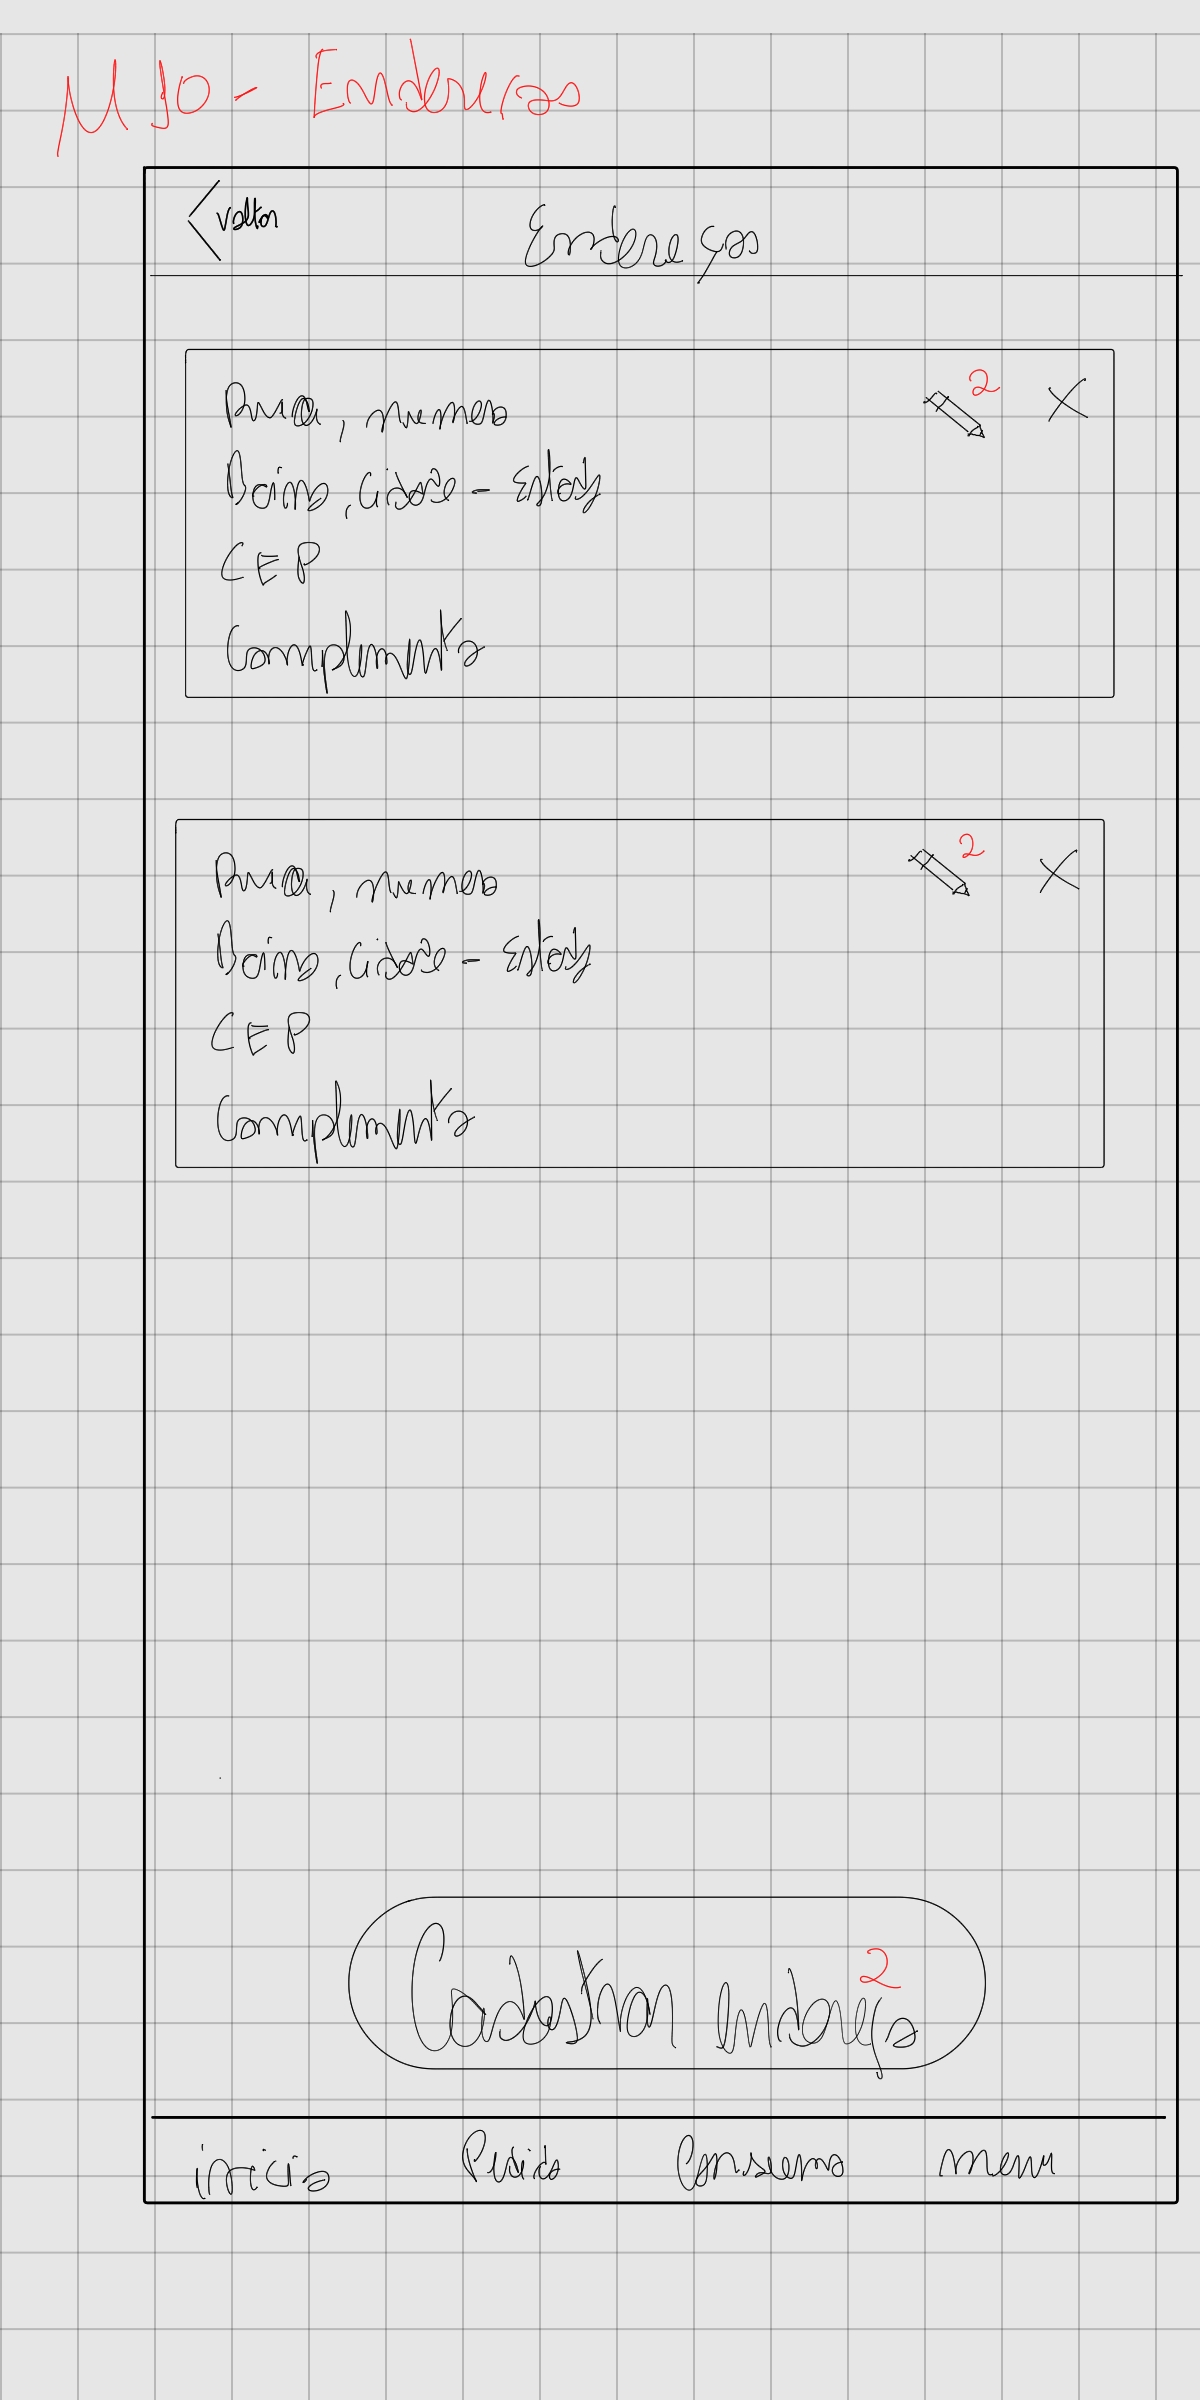 M10 - Endereços
Voltar
Endereços
2
Rua, numero
Bairro, Cidade - Estado
CEP
Complemento
2
Rua, numero
Bairro, Cidade - Estado
CEP
Complemento
2
Cadastrar endereço
inicio Pedido Consumo menu